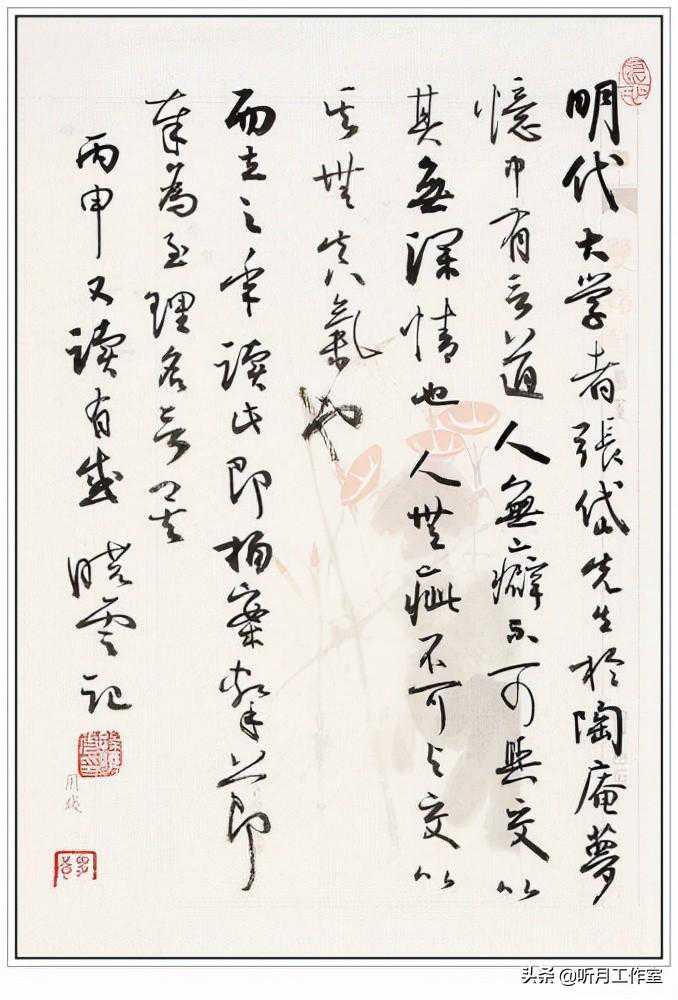 明代大学者張岱先生於陶庵夢
憶中有言道人無癖不可與交以
其無深情也人無疵不可与交以
其無真氣也
而立之年讀此即拍案擊節
奉為至理名言
丙申又讀有感 晓雲记
头条 @听月工作室